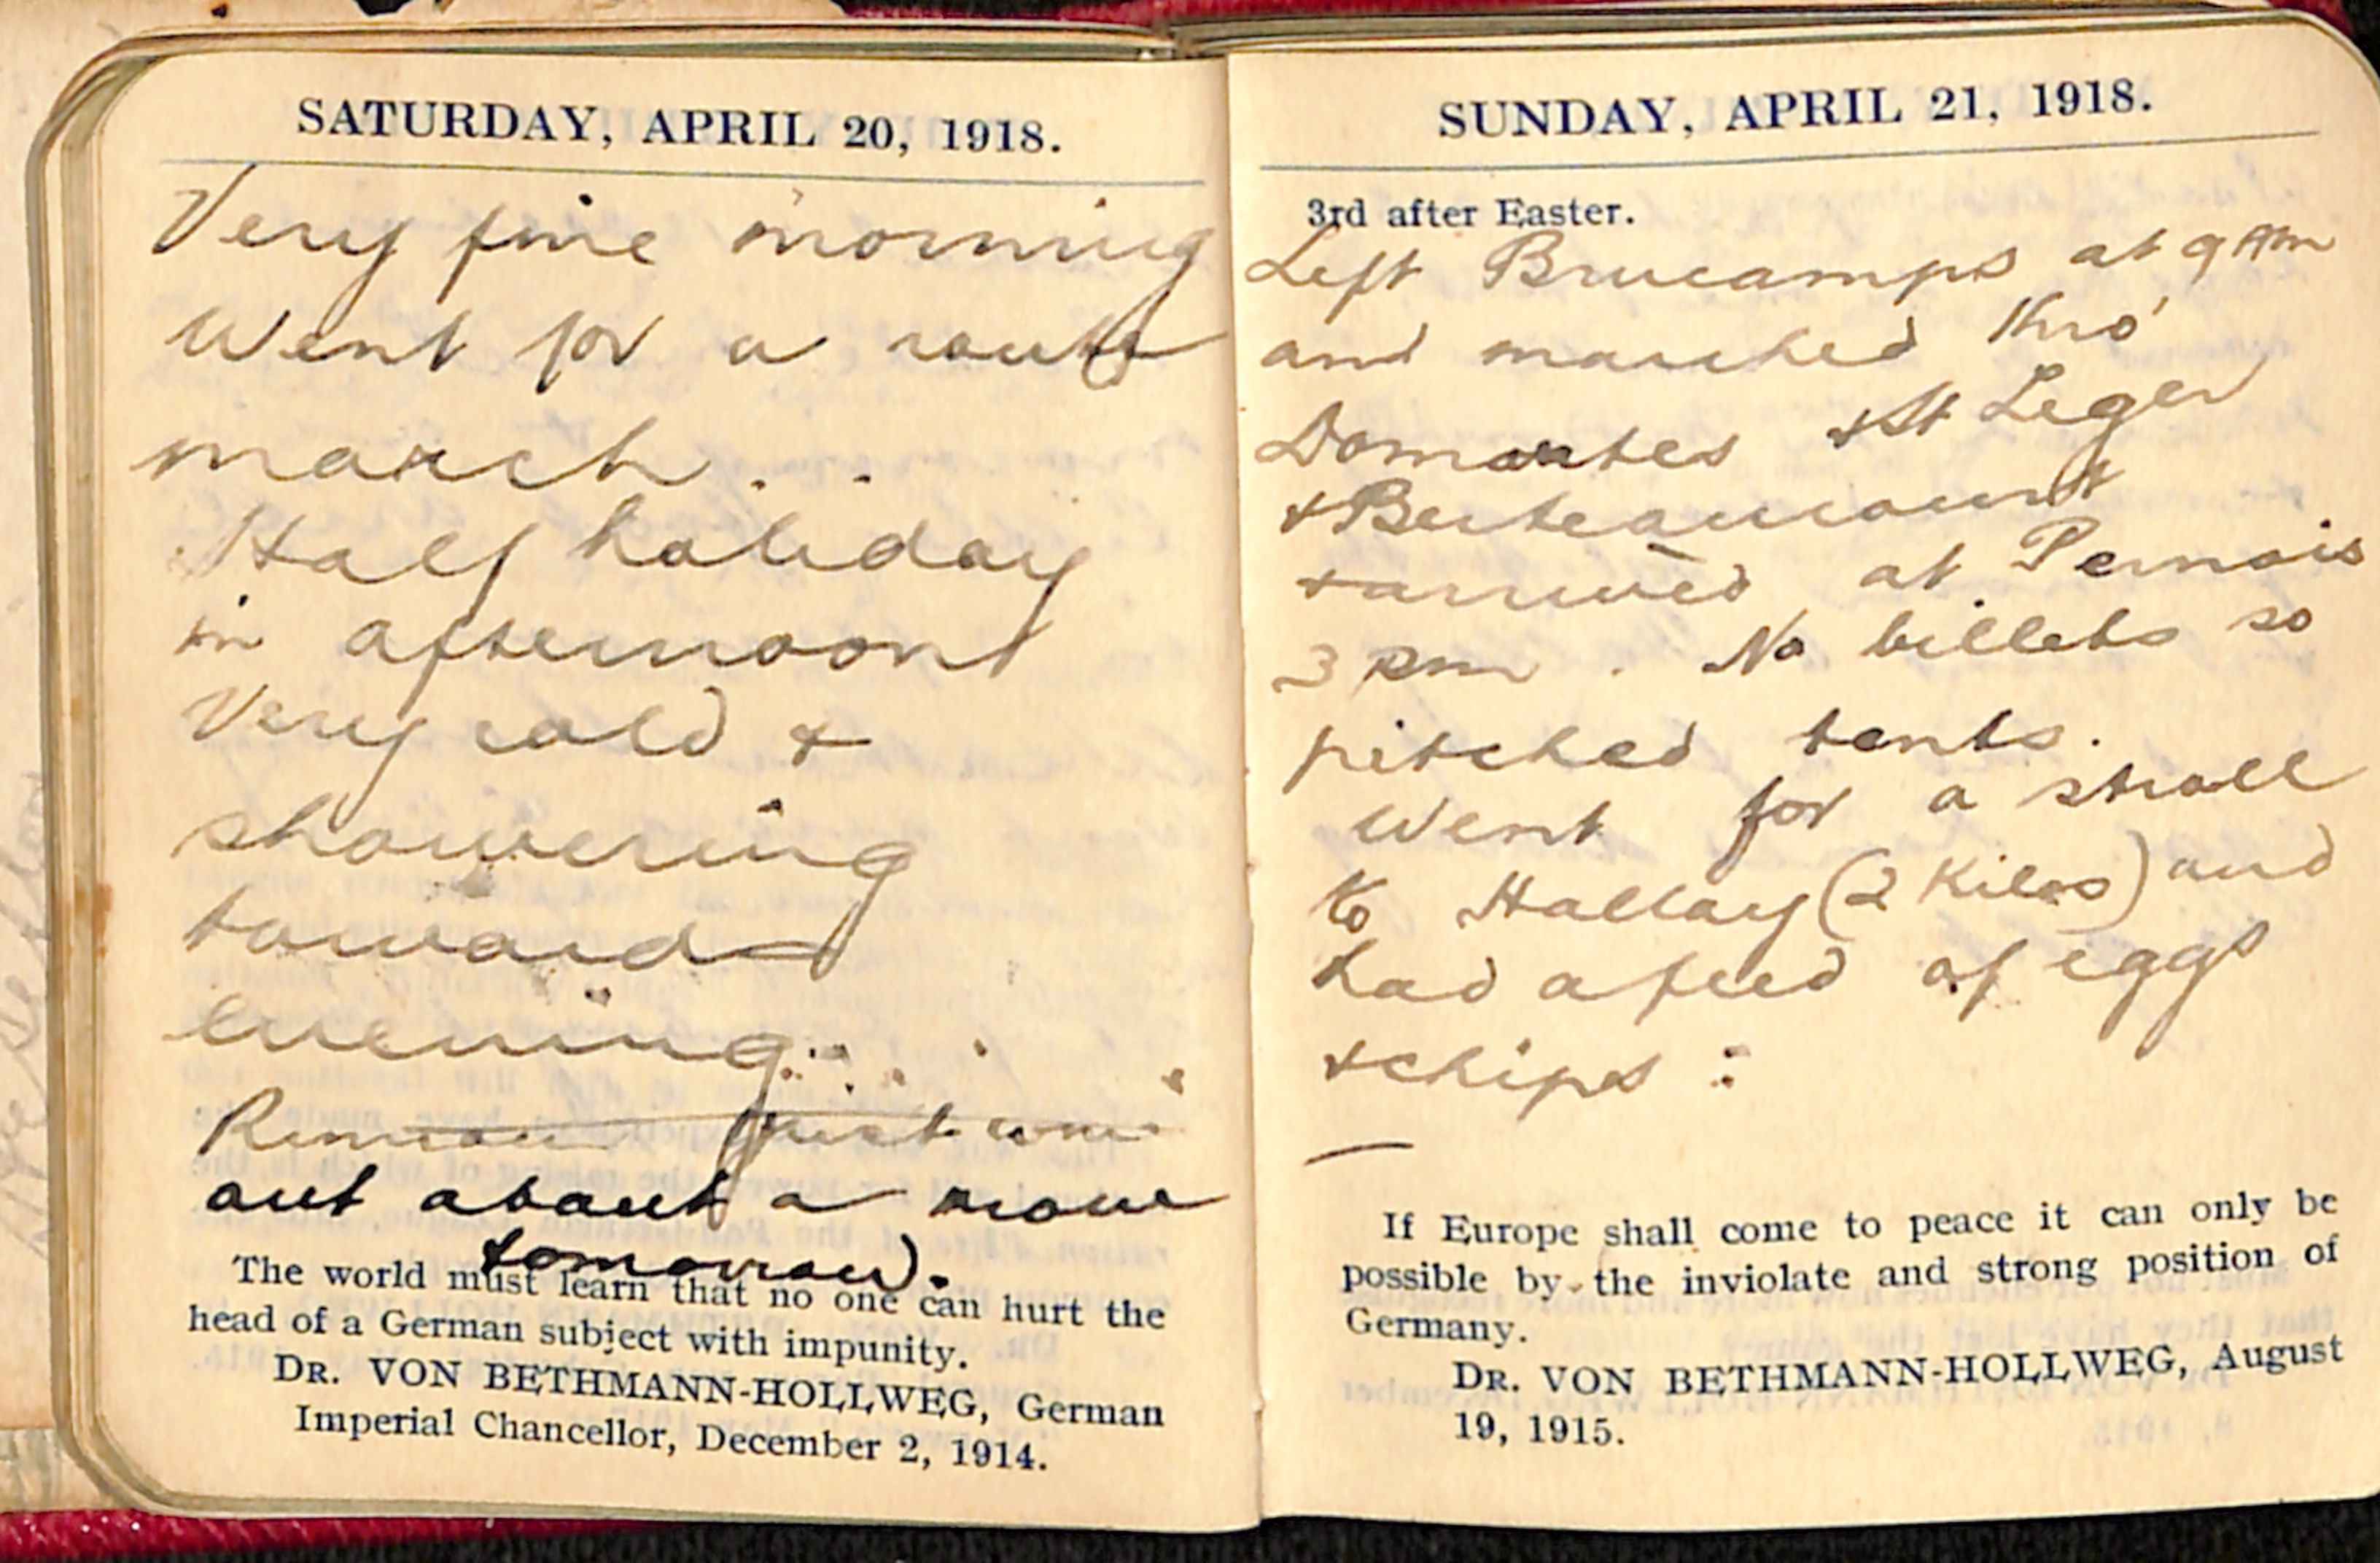 SATURDAY, APRIL 20, 1918.
Very fine morning
Went for a route
march . .
Half holiday
in afternoon
Very cold &
showering
towards
evening.
Rumour just come
out about a move
tomorrow.
The world must learn that no one can hurt the
head of a German subject with impunity.
DR. VON BETHMANN-HOLLWEG, German
Imperial Chancellor, December 2, 1914.
SUNDAY, APRIL 21, 1918.
3rd after Easter.
Left Brucamps at 9 Am
and marched thro'
Domartes & St Leger
& Berteaucourt
& arrived at Pernois
3 Pm . No billets so
pitched tents.
Went for a stroll
to Halloy (2 Kilos) and
had a feed of eggs
& chips :
If Europe shall come to peace it can only be
possible by the inviolate and strong position of
Germany.
DR. VON BETHMANN-HOLLWEG, August
19, 1915.